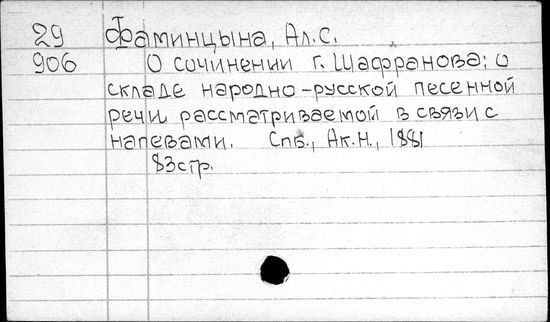 29 Фаминцына, Ал.С.
906 О сочинении г. Шафранова: о
складе народно-русской песенной
речи рассматриваемой в связи с
напевами. Спб., Ак.Н., 1881
83стр.